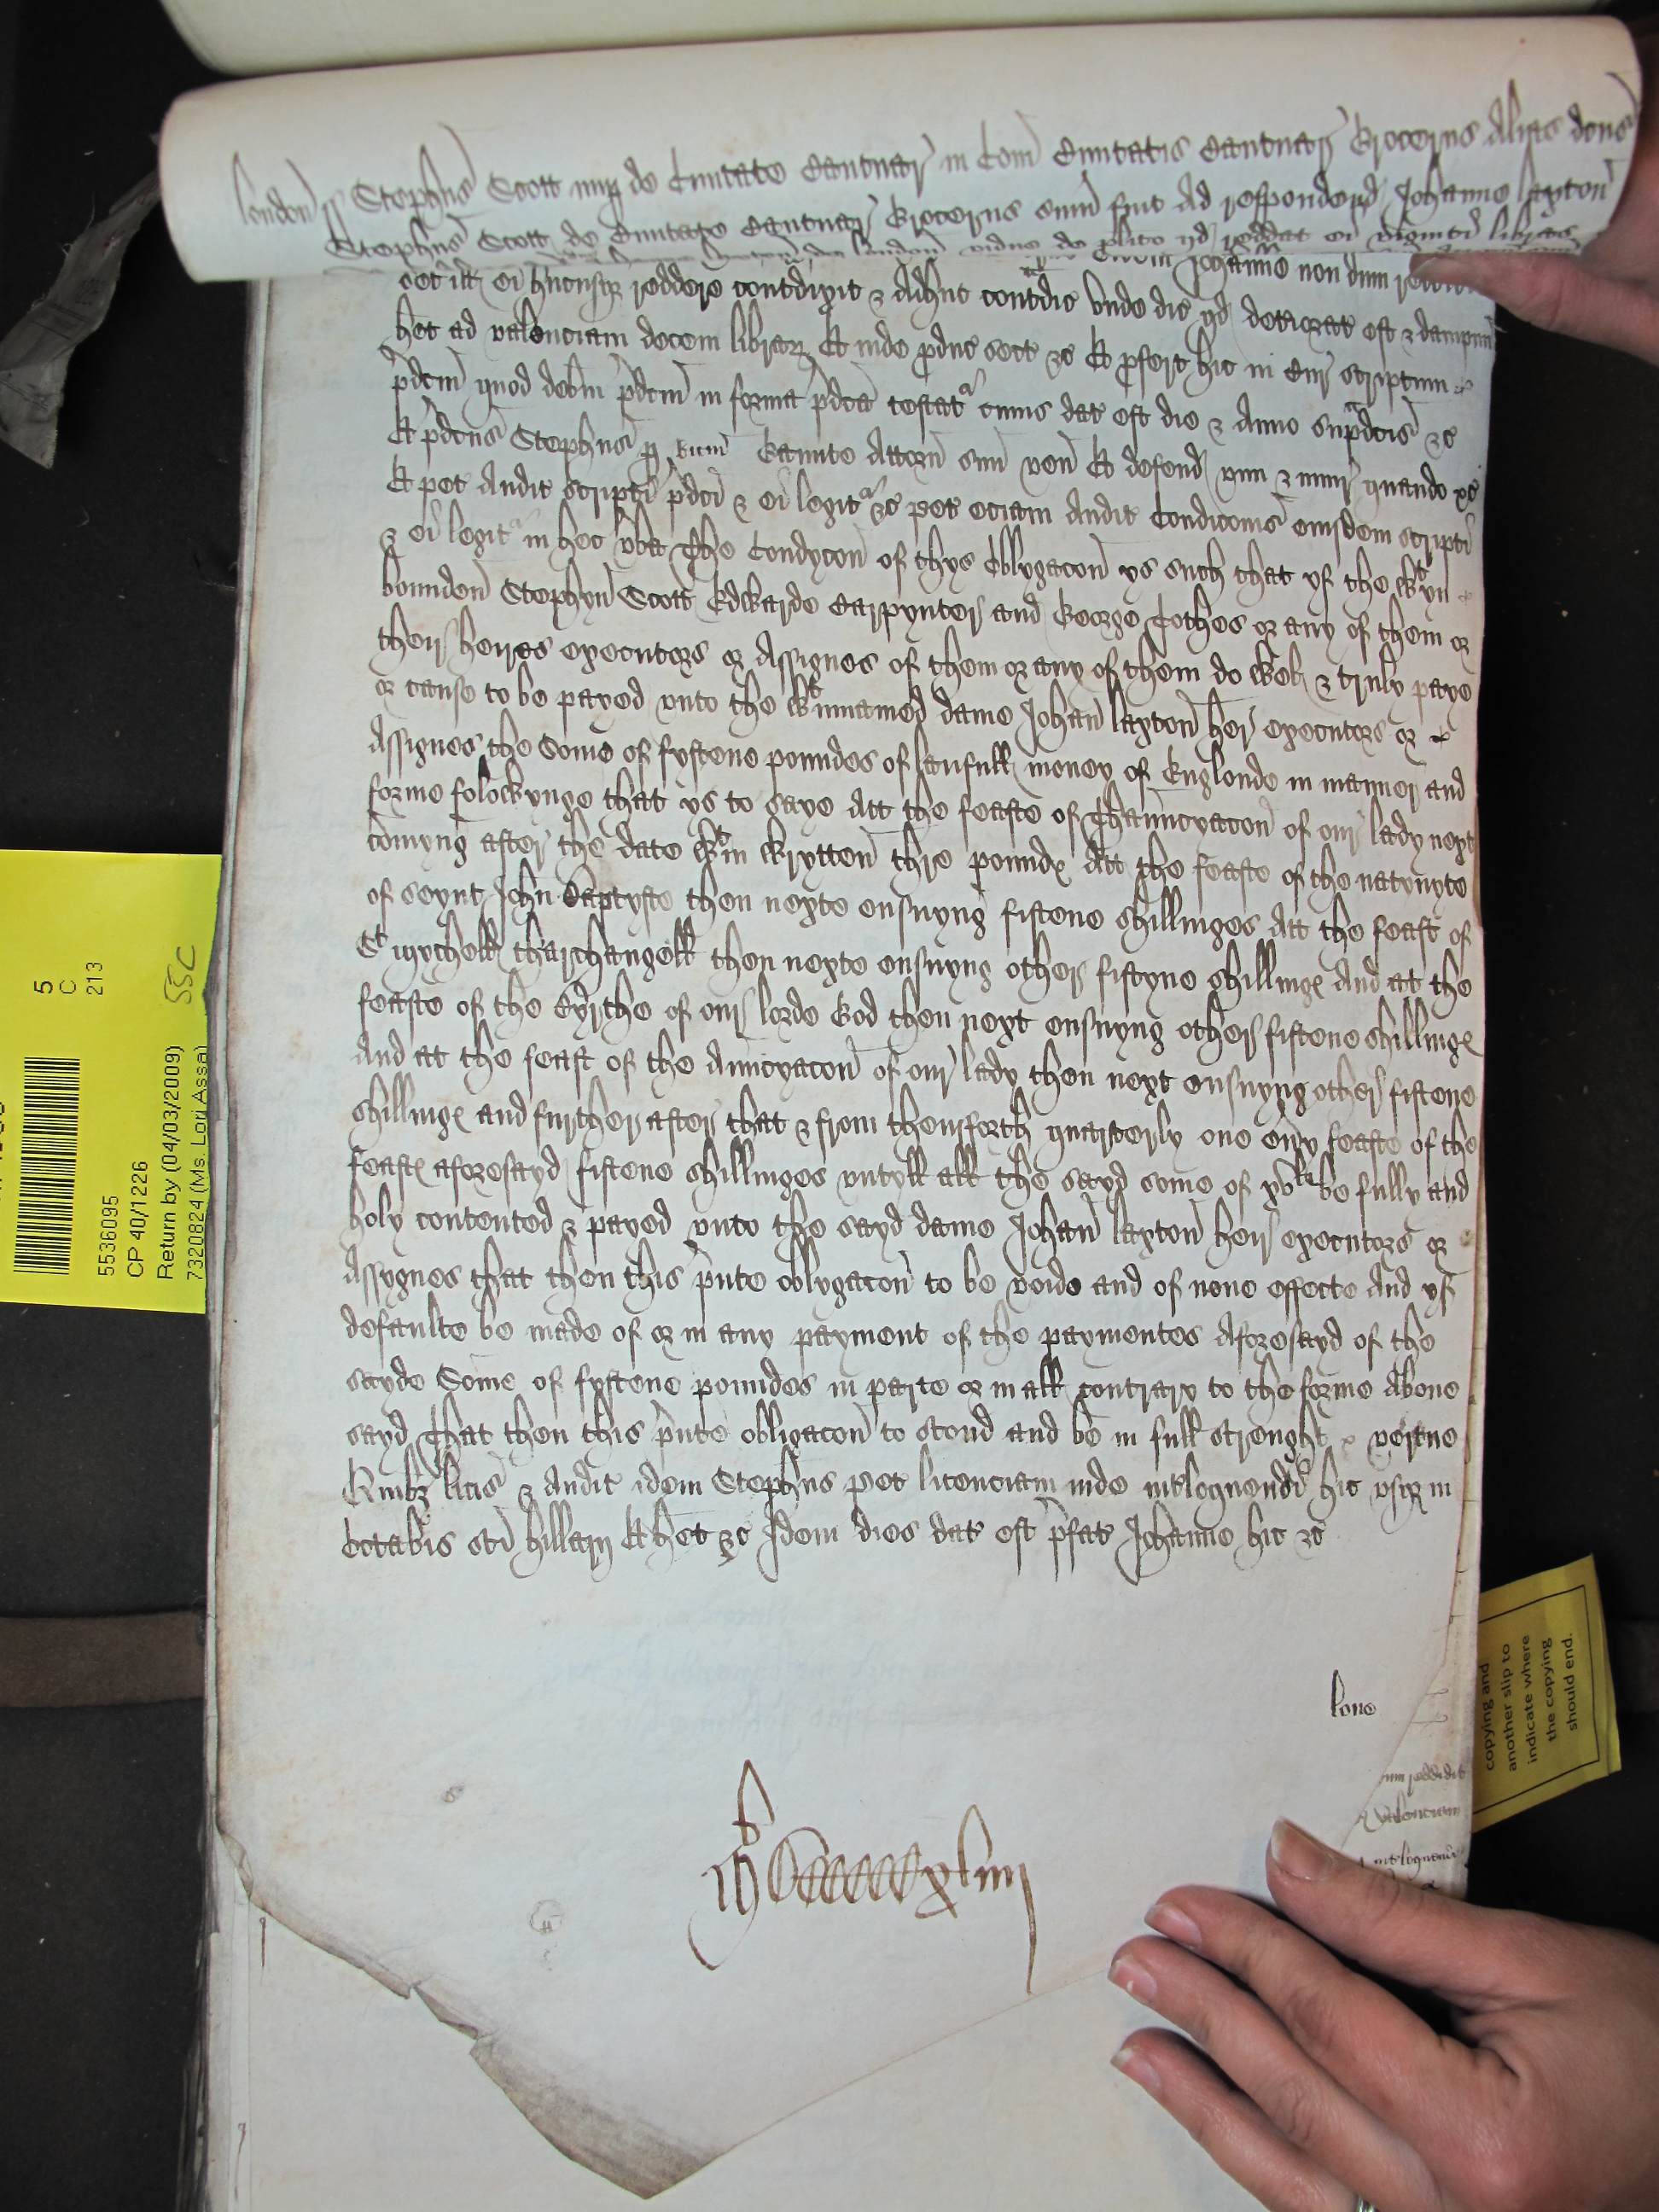 london ss Stephus Scott nup de Civitate Cantuar in Com Civitatis Cantuar Grocerus Alias dcus
Stephus Scott de Civitate Cantuar Grocerus sum fuit ad respondend Johanne laxton
de london vidue de plito qd reddat ei viginti libras
Johanne non dum
set ill ei hucusq reddere contdixit & adhuc contdic vnde dic qd deteriorat est & dampnu
het ad valenciam decem librar Et inde pduc sect &c Et pfert hic in Cur scriptum
pdcm quod debm pdcm in forma pdca testat cuius dat est die & anno supdcis &c
Et pdcus Stephus p Attorn suu ven Et defend vim & iniur quando &c
Et pet audit scripti pdci & ei legit &c pet etiam audit Condicois eiusdem scripti
& ei legit in hec vba The Condycon of thys Oblygacon ys such that yf the wtyn
bounden Stephyn Scott Edwarde Carpynter and George Tothes or any of them or
their heires executors or Assignes of them or any of them do well & truly paye
or cause to be payed vnto the wtinnamed dame Johan laxton her executors or
Assignes the Some of fyftene poundes of laufull money of Englonde in manner and
forme folowynge that ys to saye Att the feaste of Thanncyacon of our lady next
comyng after the date wtin wrytten thre pounds Att the feaste of the natyvyte
of seynt John Baptyste then nexte ensuyng fiftene shillinges Att the feast of
St mychell tharchangell then nexte ensuyng other fiftyne shillings And at the
feaste of the Byrthe of our lorde God then next ensuyng other fiftene shillings
And at the feast of the Anncyacon of our lady then next ensuyng other fiftene
shillings and further after that & from thensforth quarterly one evy feaste of the
feasts aforesayd fiftene shillinges vntyll all the sayd some of xvli be fully and
holy contented & payed vnto the sayd dame Johan laxton heir executors or
Assygnes that then this pnte oblygacon to be voide and of none effecte And yf
defaulte be made of or in any payment of the paymentes Aforesayd of the
sayde Some of fyftene poundes in parte or in all contrary to the forme Above
sayd That then this pnte obligacon to stond and be in full strenght & vertue
Quibz lcis & audit idem Stephus pet licenciam inde intloquendi hic vsq in
Octabis sci hillarij Et het &c Idem dies dat est pfat Johanne hic &c
lone
reddidit
valenciam
intloquendi
5
C
213
SSC
5536095
CP 40/1226
Return by (04/03/2009)
7320824 (Ms. Lori Assa)
copying and
another slip to
indicate where
the copying
should end.